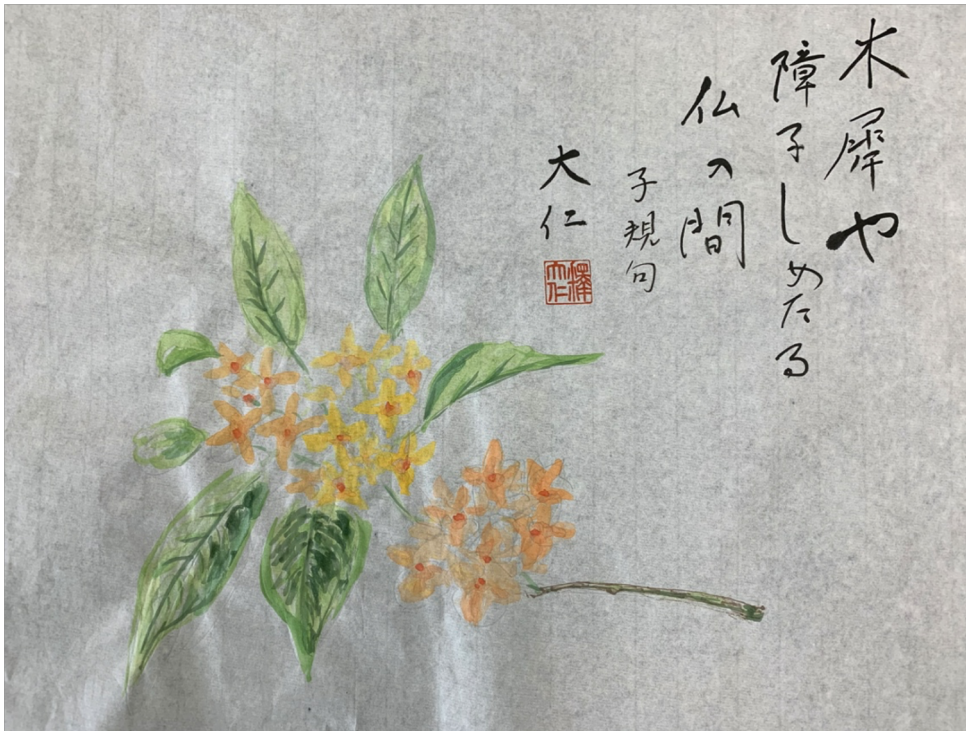 木犀や
障子しめたる
仏の間
子規句
大仁